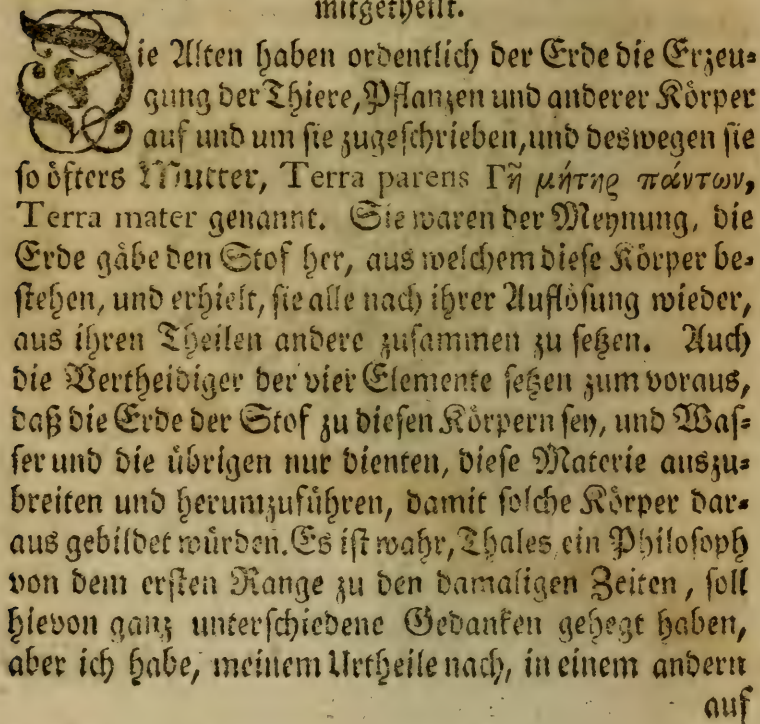 mitgetheilt.
Die Alten haben ordentlich der Erde die Erzeu-
gung der Thiere, Pflanzen und anderer Körper
auf und um sie zugeschrieben, und deswegen sie
so öfters Mutter, Terra parens Γῆ μήτηρ πάντων,
Terra mater genannt. Sie waren der Meynung, die
Erde gäbe den Stof her, aus welchem diese Körper be-
stehen, und erhielt, sie alle nach ihrer Auflösung wieder,
aus ihren Theilen andere zusammen zu setzen. Auch
die Vertheidiger der vier Elemente setzen zum voraus,
daß die Erde der Stof zu diesen Körpern sey, und Was-
ser und die übrigen nur dienten, diese Materie auszu-
breiten und herumzuführen, damit solche Körper dar-
aus gebildet würden. Es ist wahr, Thales, ein Philosoph
von dem ersten Range zu den damaligen Zeiten, soll
hievon ganz unterschiedene Gedanken gehegt haben,
aber ich habe, meinem Urtheile nach, in einem andern
auf